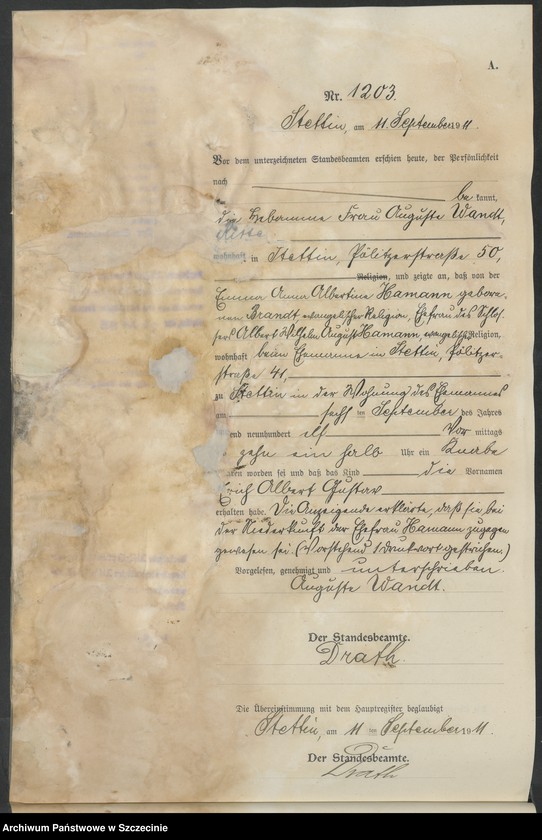 A.
Nr. 1203.
Stettin, am 11. September 1911.
Vor dem unterzeichneten Standesbeamten erschien heute, der Persönlichkeit
nach be kannt,
die Hebamme Frau Auguste Wandt,
wohnhaft in Stettin, Pölitzerstraße 50,
Religion, und zeigte an, daß von der
Emma Anna Albertine Hamann gebore-
nen Brandt, evangelischer Religion, Ehefrau des Schlos-
sers Albert Wilhelm August Hamann, evangelisch Religion,
wohnhaft beim Ehemanne in Stettin, Pölitzer-
straße 41,
zu Stettin in der Wohnung des Ehemannes
am sechs ten September des Jahres
end neunhundert elf Vor mittags
zehn ein halb Uhr ein Knabe
ren worden sei und daß das Kind die Vornamen
Erich Albert Gustav
erhalten habe. Die Anzeigende erklärte, daß sie bei
der Niederkunft der Ehefrau Hamann zugegen
gewesen sei. (Vorstehend 1 Druckwort gestrichen.)
Vorgelesen, genehmigt und unterschrieben.
Auguste Wandt.
Der Standesbeamte.
Drath.
Die Übereinstimmung mit dem Hauptregister beglaubigt
Stettin, am 11 ten September 1911.
Der Standesbeamte.
Drath
Archiwum Państwowe w Szczecinie